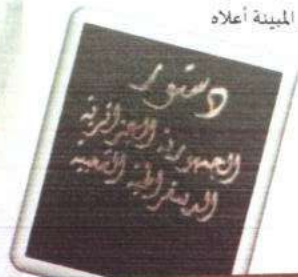 المبينة أعلاه
دستور
الجمهورية الجزائرية
الديمقراطية الشعبية